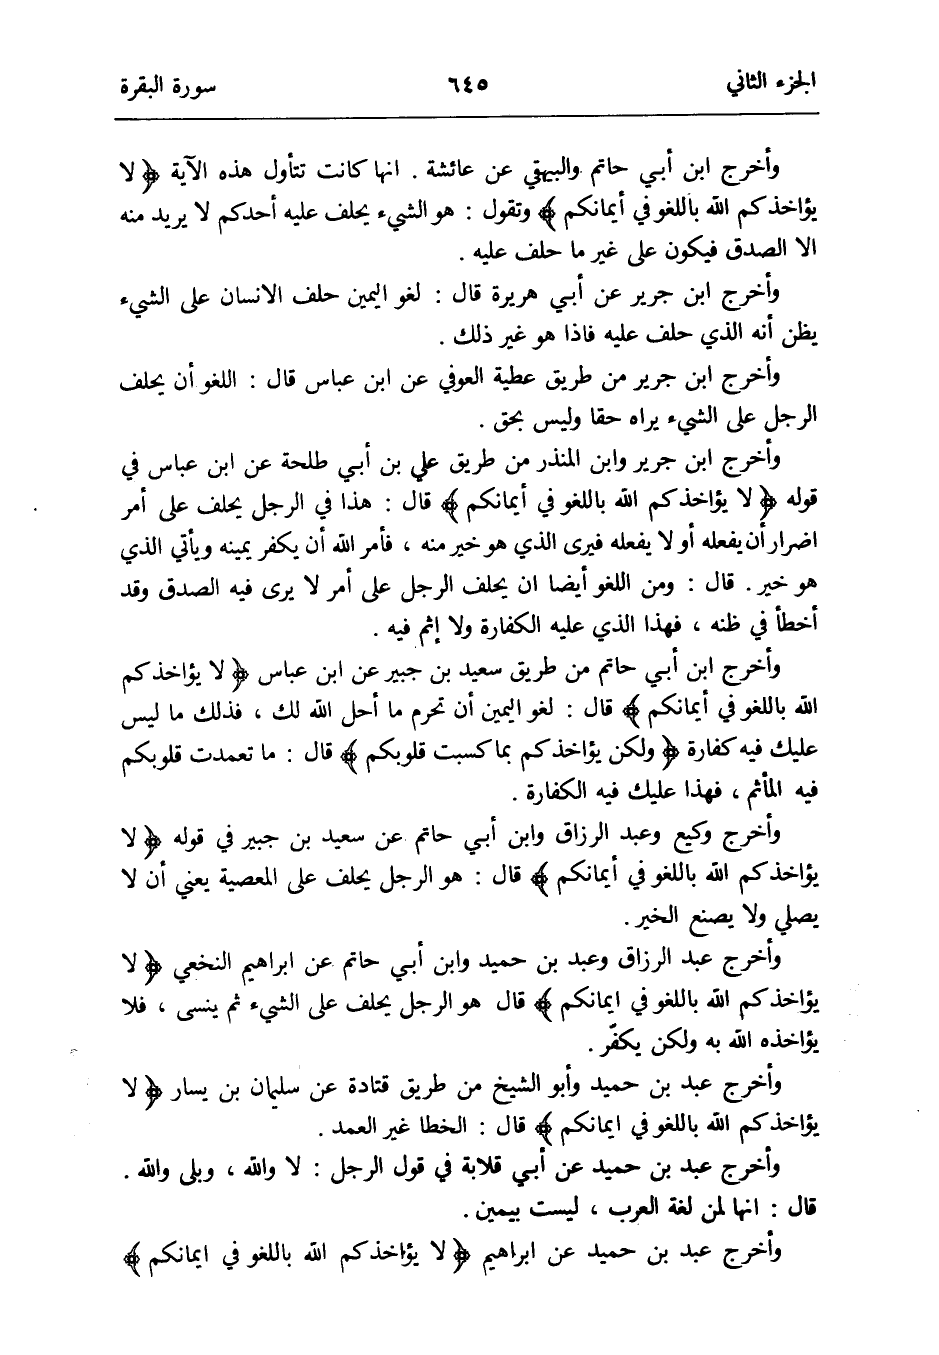 الجزء الثاني ٦٤٥ سورة البقرة
وأخرج ابن أبي حاتم والبيهقي عن عائشة . انها كانت تتأول هذه الآية ﴿ لا
يؤاخذكم الله باللغو في أيمانكم ﴾ وتقول : هو الشيء يحلف عليه أحدكم لا يريد منه
الا الصدق فيكون على غير ما حلف عليه .
وأخرج ابن جرير عن أبي هريرة قال : لغو اليمين حلف الانسان على الشيء
يظن أنه الذي حلف عليه فاذا هو غير ذلك .
وأخرج ابن جرير من طريق عطية العوفي عن ابن عباس قال : اللغو أن يحلف
الرجل على الشيء يراه حقا وليس بحق .
وأخرج ابن جرير وابن المنذر من طريق علي بن أبي طلحة عن ابن عباس في
قوله ﴿ لا يؤاخذكم الله باللغو في أيمانكم ﴾ قال : هذا في الرجل يحلف على أمر
اضرار أن يفعله أو لا يفعله فيرى الذي هو خير منه ، فأمر الله أن يكفر يمينه ويأتي الذي
هو خير . قال : ومن اللغو أيضا ان يحلف الرجل على أمر لا يرى فيه الصدق وقد
أخطأ في ظنه ، فهذا الذي عليه الكفارة ولا إثم فيه .
وأخرج ابن أبي حاتم من طريق سعيد بن جبير عن ابن عباس ﴿ لا يؤاخذكم
الله باللغو في أيمانكم ﴾ قال : لغو اليمين أن تحرم ما أحل الله لك ، فذلك ما ليس
عليك فيه كفارة ﴿ ولكن يؤاخذكم بما كسبت قلوبكم ﴾ قال : ما تعمدت قلوبكم
فيه المأثم ، فهذا عليك فيه الكفارة .
وأخرج وكيع وعبد الرزاق وابن أبي حاتم عن سعيد بن جبير في قوله ﴿ لا
يؤاخذكم الله باللغو في أيمانكم ﴾ قال : هو الرجل يحلف على المعصية يعني أن لا
يصلي ولا يصنع الخير .
وأخرج عبد الرزاق وعبد بن حميد وابن أبي حاتم عن ابراهيم النخعي ﴿ لا
يؤاخذكم الله باللغو في ايمانكم ﴾ قال هو الرجل يحلف على الشيء ثم ينسى ، فلا
يؤاخذه الله به ولكن يكفّر .
وأخرج عبد بن حميد وأبو الشيخ من طريق قتادة عن سليمان بن يسار ﴿ لا
يؤاخذكم الله باللغو في ايمانكم ﴾ قال : الخطا غير العمد .
وأخرج عبد بن حميد عن أبي قلابة في قول الرجل : لا والله ، وبلى والله .
قال : انها لمن لغة العرب ، ليست بيمين .
وأخرج عبد بن حميد عن ابراهيم ﴿ لا يؤاخذكم الله باللغو في ايمانكم ﴾